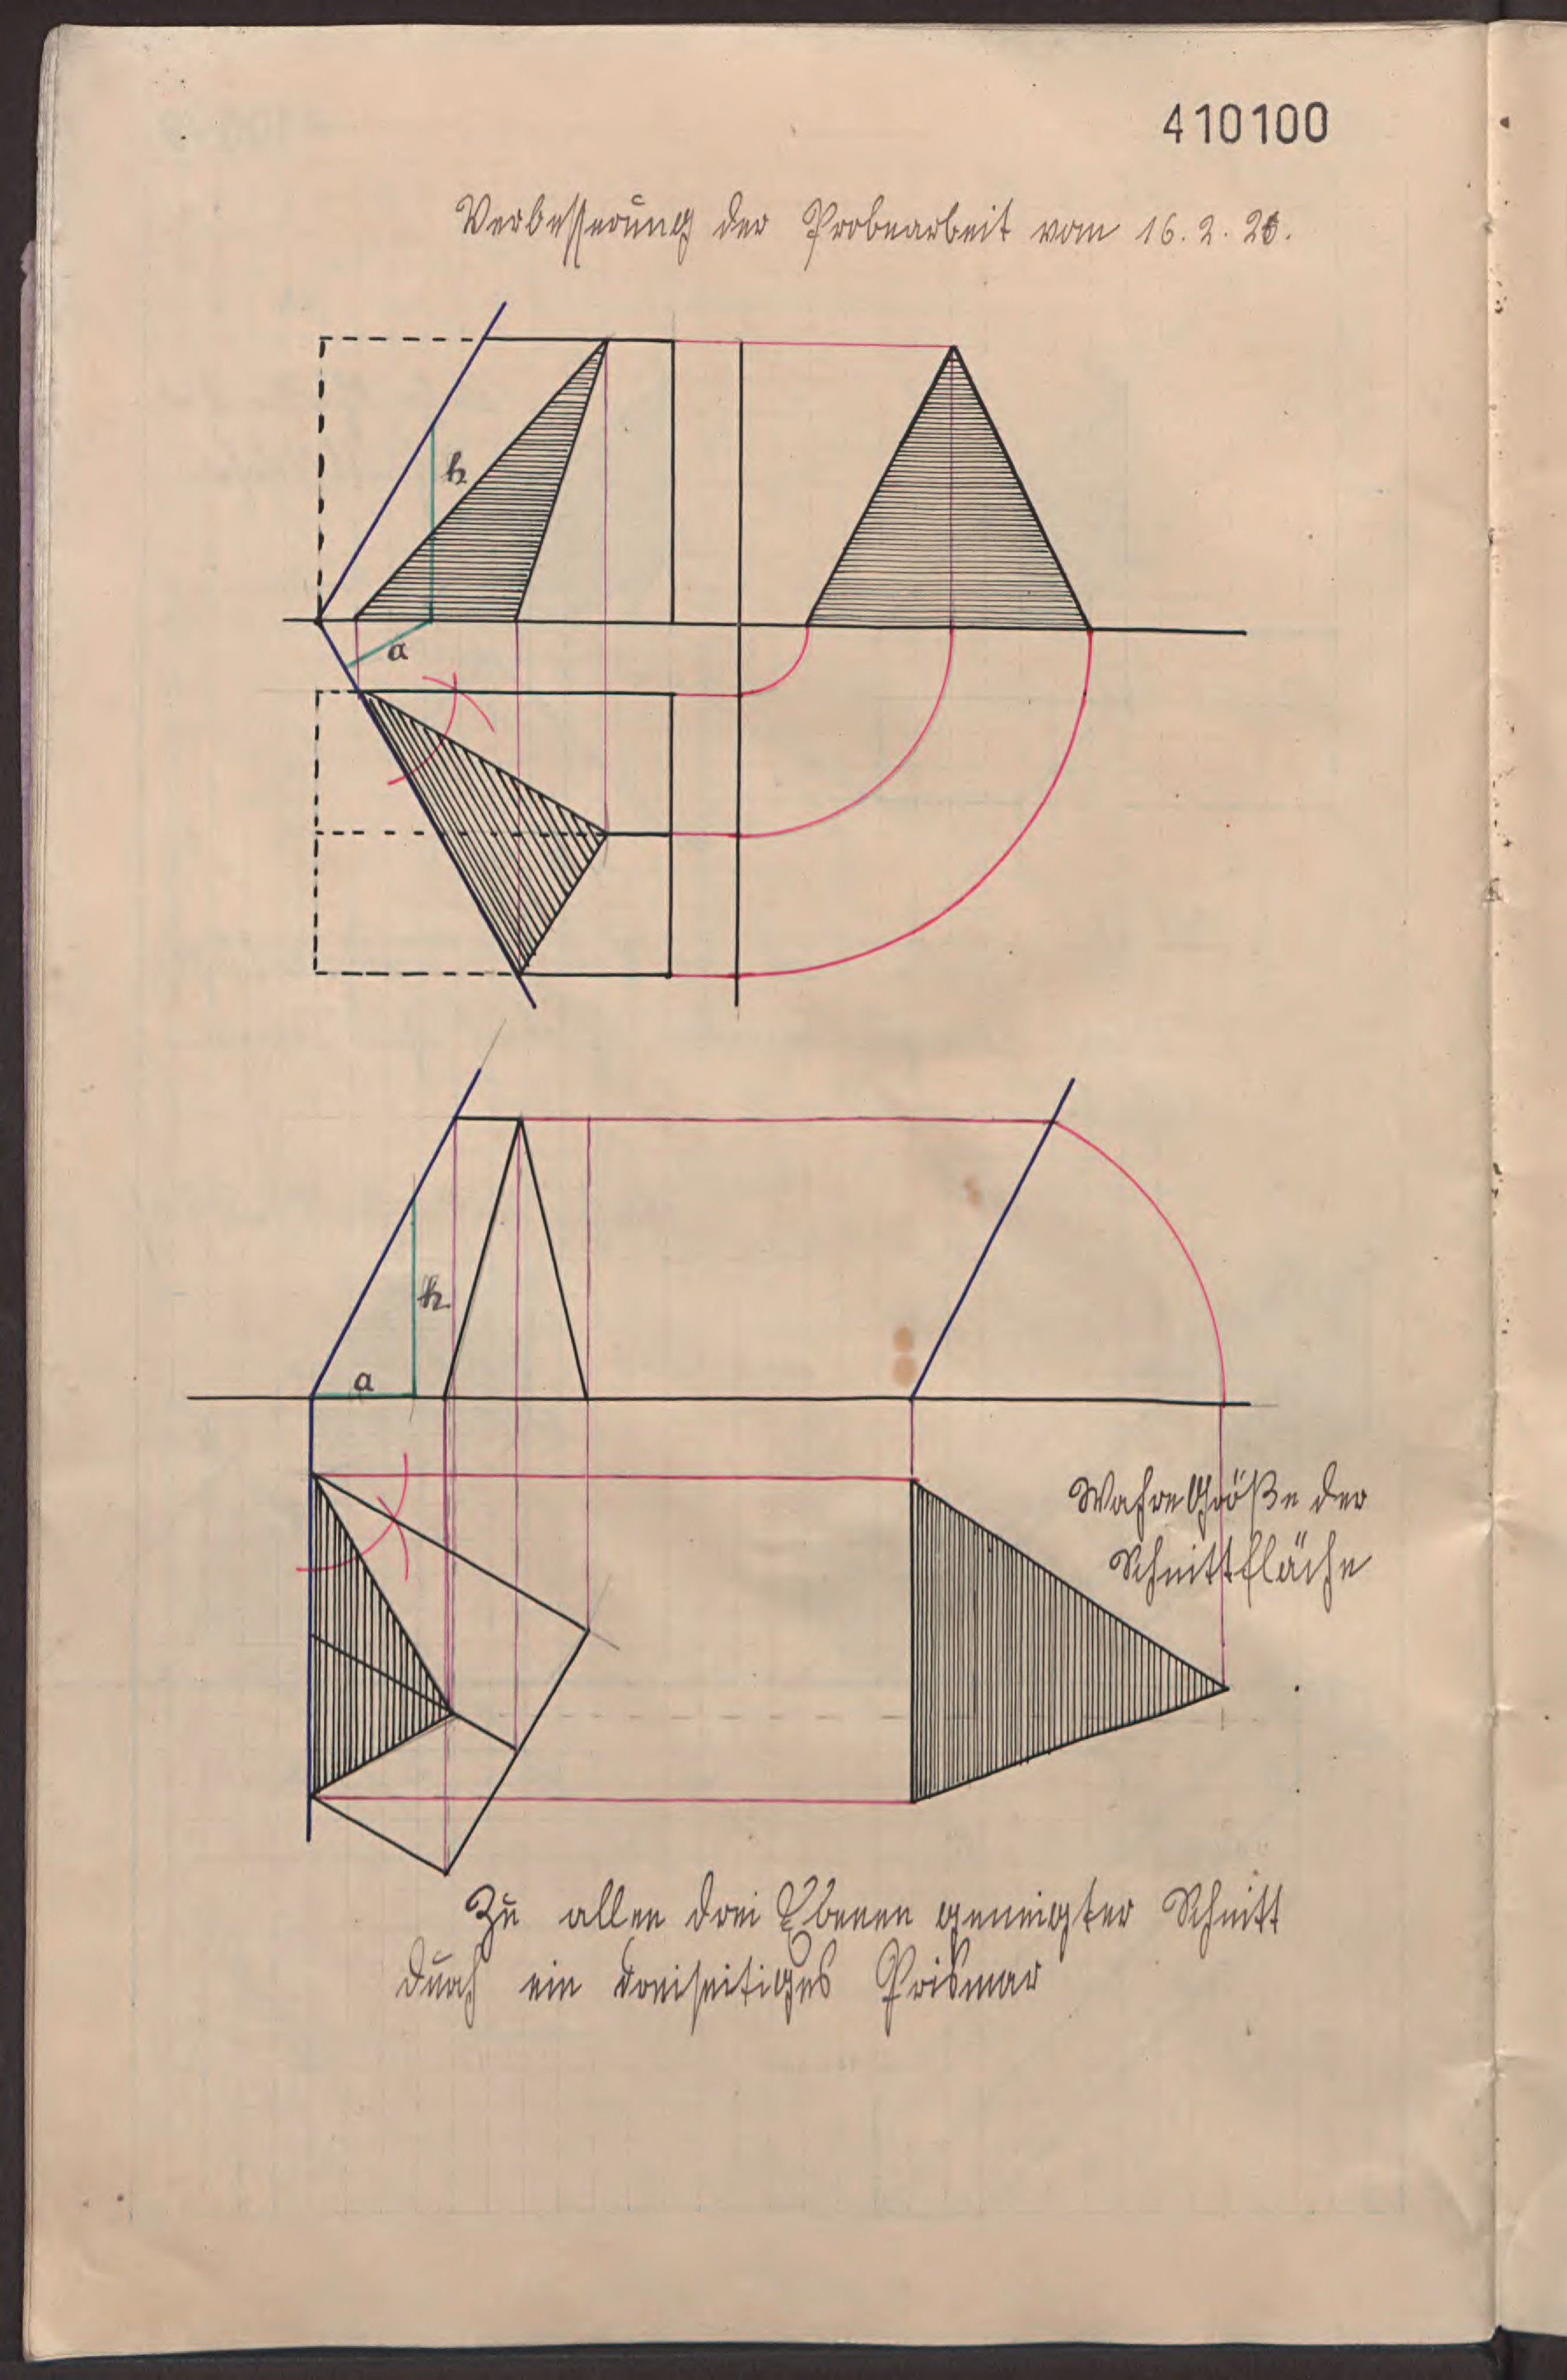 410100
Verbesserung der Probearbeit vom 16. 2. 26.
h
a
h
a
Wahre Größe der
Schnittfläche
Zu allen drei Ebenen geneigter Schnitt
durch ein dreiseitiges Prisma